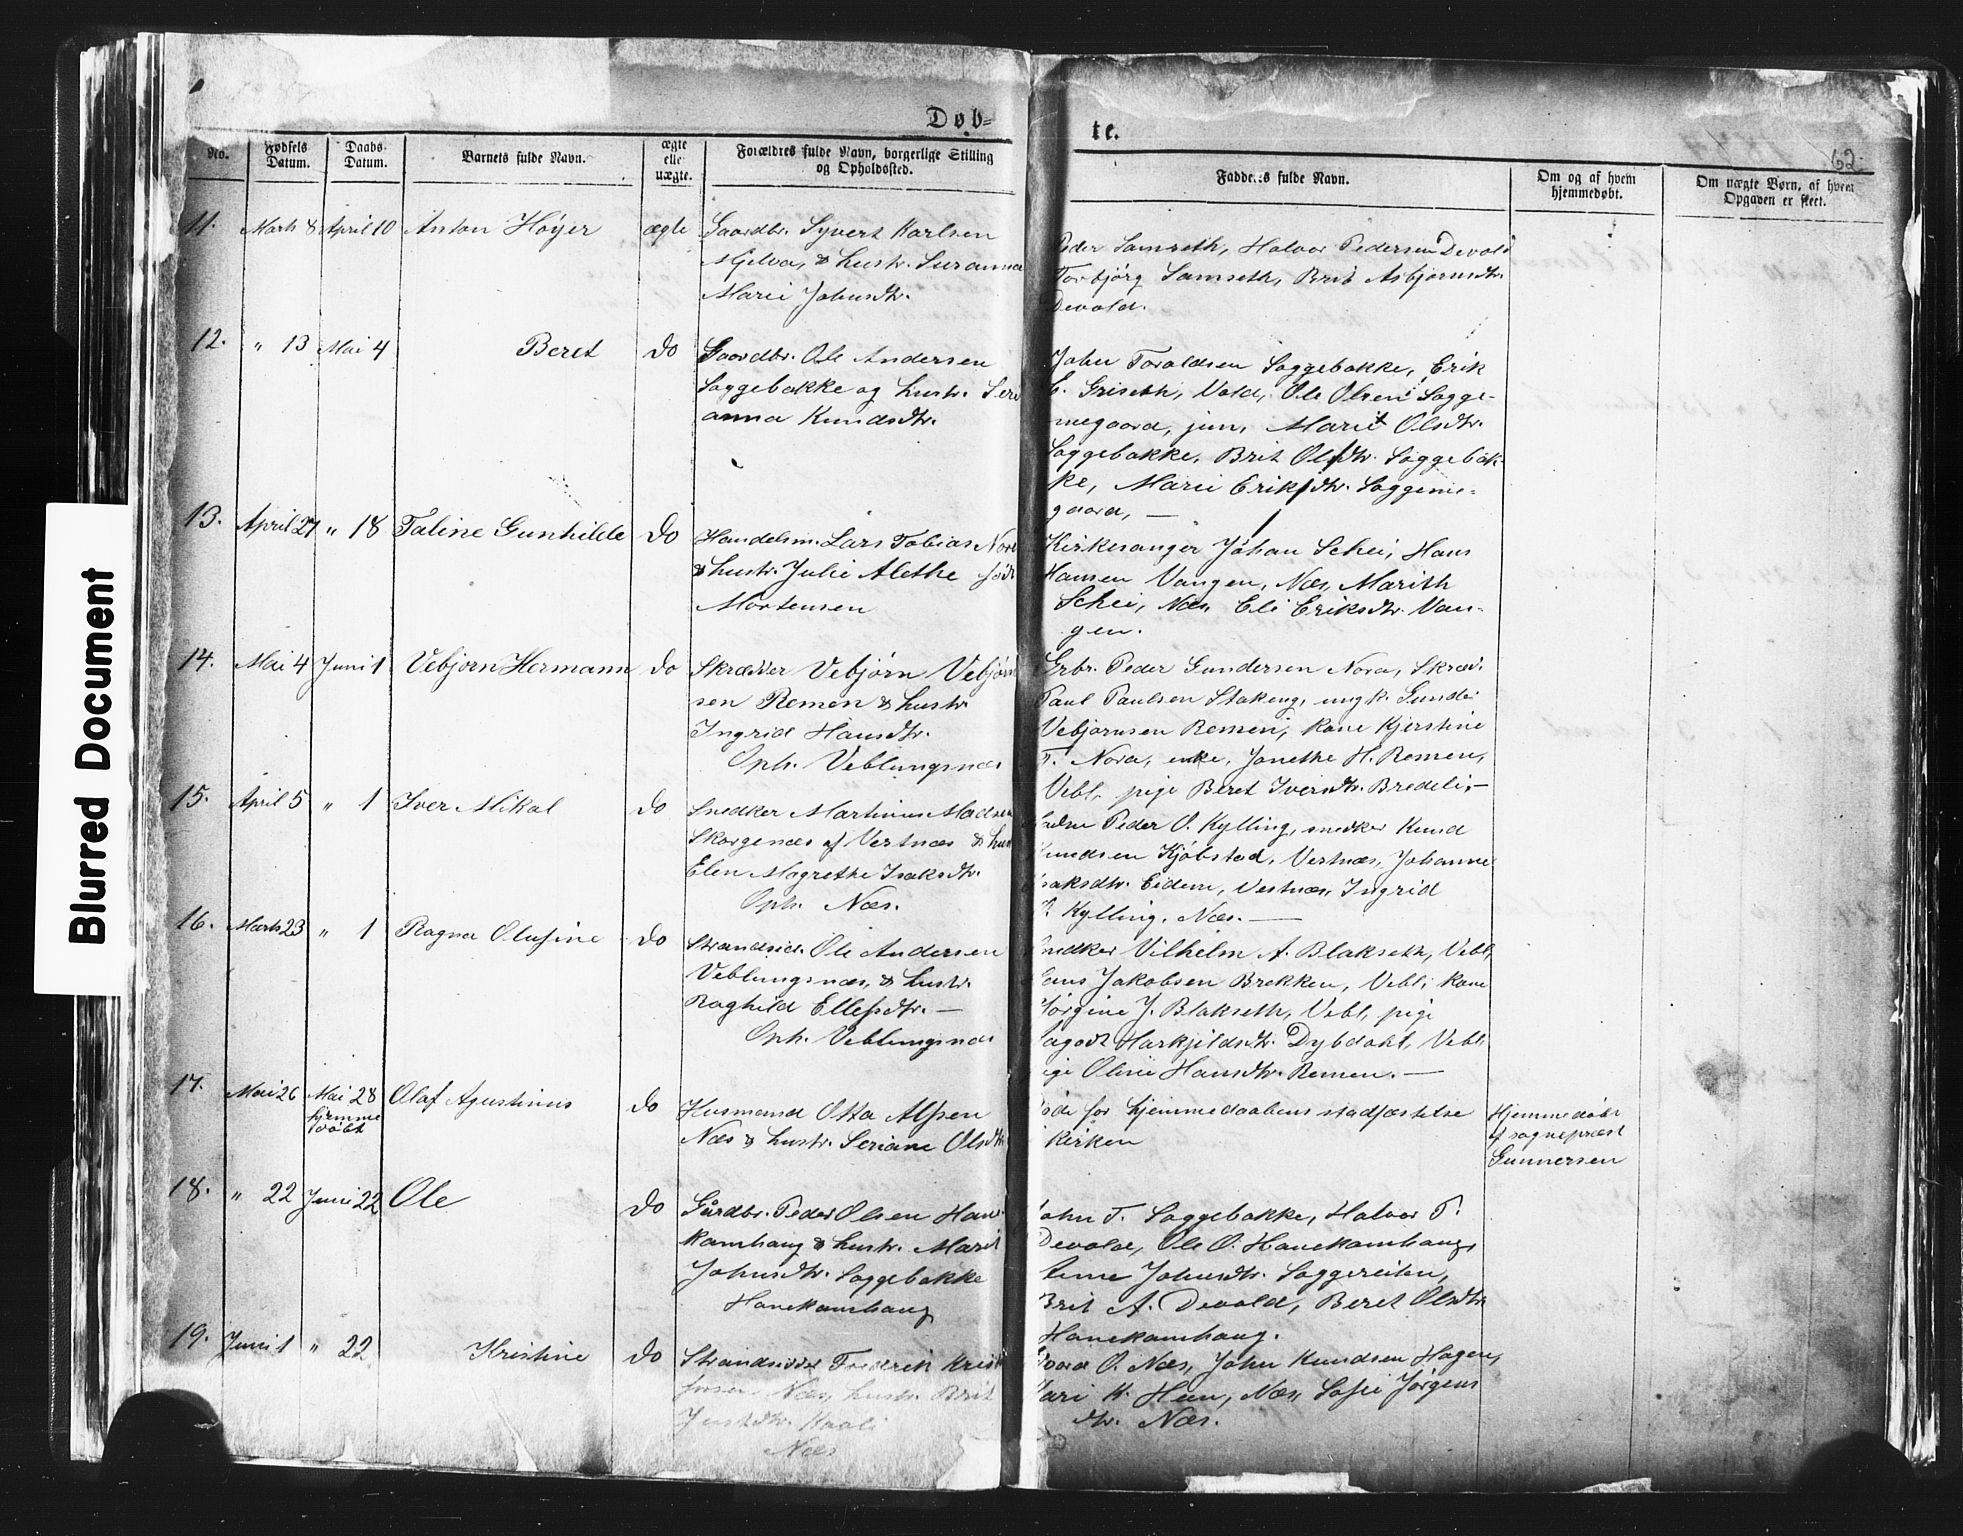 Døb=
te.
62
No.
Fødsels Datum.
Daabs- Datum.
Barnets fulde Navn.
ægte elle uægte.
Forældres fulde Navn, borgerlige Stilling og Opholdssted.
Fadde..s fulde Navn.
Om og af hvem hjemmedøbt.
Om uægte Børn, af hvem Opgaven er skeet.
Blurred Document
11. Marts 8 April 10 Anton Høyer ægte Gaardbr. Syvert Karlsen
Mjelva, & hustr. Suranna
Marie Johnsdtr.
Peder Samseth, Halvor Pedersen Devold
Torbjörg Samseth, Brit Asbjörnsdtr.
Devold.
12. " 13 Mai 4 Beret do Gaardbr. Ole Andersen
Soggebakke og hustr. Ser
anna Knudsdtr.
John Toraldsen Soggebakke, Erik
E. Griseth, Vold, Ole Olsen Sogge-
megaard, jun, Marit Olsdtr.
Soggebakke, Brit Olsdtr. Soggebak-
ke, Marie Eriksdtr. Soggeme-
gaard, —
13. April 27 " 18 Taline Gunhilde do Handelsm. Lars Tobias Nor
& hustr. Julie Alethe föd
Mortensen
Kirkesanger Johan Schei, Hans
Hansen Vangen, Næs, Marith
Schei, Næs, Eli Eriksdtr. Van-
gen.
14. Mai 4 Juni 1 Vebjørn Hermann do Skrædder Vebjörn Vebjörn
sen Remen & hustr.
Ingrid Hansdtr.
Oph. Veblungsnæs
Grbr. Peder Gundersen Nora, Skræd.
Paul Paulsen Stakeng, ungk. Gunder
Vebjørnsen Remen, kone Kjerstine
T. Nora, enke, Jonethe H. Remen,
Vebl, pige Beret Iversdtr. Bredeli, —
15. April 5 " 1 Iver Mikal do Snedker Martinus Madsen
Skorgenæs af Vestnæs & hus
Elen Magrethe Isaksdtr.
Oph. Næs.
Peder O. Kylling, snedker Knud
Knudsen Kjöbstad, Vestnæs, Johanne
Isaksdtr. Eidem, Vestnæs, Ingrid
Kylling, Næs. —
16. Marts 23 " 1 Ragna Olufine do Strandsid. Ole Andersen
Veblungsnæs, & hustr.
Raghild Ellefsdtr. —
Oph. Veblungsnæs
snedker Vilhelm A. Blakseth, Vebl,
Hans Jakobsen Brekken, Vebl, kone
Jörgine J. Blakseth, Vebl, pige
Harkjeldsdtr. Dybdahl, Vebl
pige Oline Hansdtr. Remen. —
17. Mai 26 Mai 28 hjemme döbt Olaf Agustinus do Husmand Otto Alfsen
Næs & hustr. Seriane Olsdtr
for hjemmedaabens stadfæstelse
i kirken
Hjemmedöbt
af sognepræst
Gunnersen
18. " 22 Juni 22 Ole do Gårdbr. Peder Olsen Hane
kamhaug & hustr. Marit
Johnsdtr. Soggebakke
Hanekamhaug
John T. Soggebakke, Halvor P.
Devold, Ole O. Hanekamhaug,
Anne Johnsdtr. Soggereiten,
Brit A. Devold, Beret Olsdtr
Hanekamhaug.
19. Juni 1 " 22 Kristine do Strandsidder Fredrik Krist
Næs, hustr. Brit
Næs
O. Næs, John Knudsen Hagen,
Kari K. Heen, Næs, Sofie Jörgens
dtr. Næs.